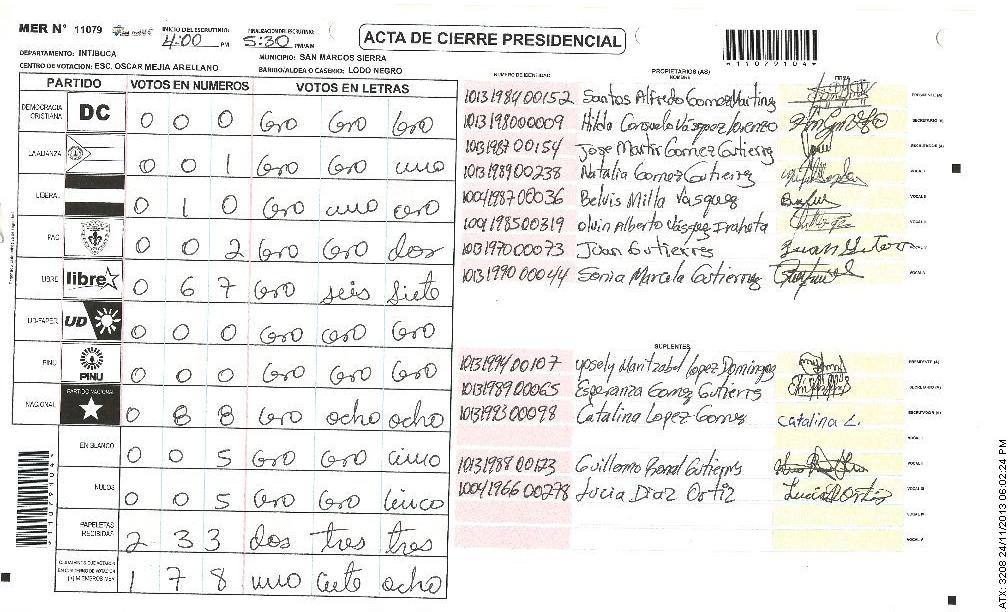 MER N° 11079
INICIO DEL ESCRUTINIO: 4:00 PM
FINALIZACION DEL ESCRUTINIO: 5:30 PM/AM
ACTA DE CIERRE PRESIDENCIAL
*11079104*
DEPARTAMENTO: INTIBUCA
MUNICIPIO: SAN MARCOS SIERRA
CENTRO DE VOTACION: ESC. OSCAR MEJIA ARELLANO
BARRIO/ALDEA O CASERIO: LODO NEGRO
PARTIDO VOTOS EN NUMEROS VOTOS EN LETRAS
DEMOCRACIA CRISTIANA DC 0 0 0 Cero Cero Cero
LA ALIANZA 0 0 1 Cero Cero uno
LIBERAL 0 1 0 Cero uno cero
PAC 0 0 2 Cero Cero dos
LIBRE libre 0 6 7 Cero seis siete
UD-FAPER UD 0 0 0 Cero cero Cero
PINU PINU 0 0 0 Cero Cero Cero
NACIONAL PARTIDO NACIONAL 0 8 8 Cero ocho ocho
EN BLANCO 0 0 5 Cero Cero cinco
NULOS 0 0 5 Cero Cero cinco
PAPELETAS RECIBIDAS 2 3 3 dos tres tres
1 7 8 uno ocho
NUMERO DE IDENTIDAD PROPIETARIOS (AS) NOMBRE FIRMA
1013198400152 Santos Alfredo Gomez Martinez PRESIDENTE (A)
1013198000009 Hilda Consuelo Vásquez Lorenzo SECRETARIO (A)
1013198700154 Jose Martir Gomez Gutierrez ESCRUTADOR (A)
1013198900238 Natalia Gomez Gutierrez VOCAL I
1004198700036 Belvis Milla Vasquez VOCAL II
1001198500319 olvin Alberto Vásquez VOCAL III
1013197000073 Juan Gutierres Juan Gutierr VOCAL IV
1013199000044 Sonia Marcela Gutierrez VOCAL V
SUPLENTES
1013199400107 yosely Maritzabel Lopez Dominguez PRESIDENTE (A)
1013198900065 Esperanza Gomez Gutierris SECRETARIO (A)
1013199300098 Catalina Lopez Gomez catalina L. ESCRUTADOR (A)
VOCAL I
1013198800123 Guillermo Gutierrez VOCAL II
1004196600278 Lucia Diaz Ortiz Lucia D Ortiz VOCAL III
VOCAL IV
VOCAL V
*11079104*
ATX: 3208 24/11/2013 06:02:24 PM